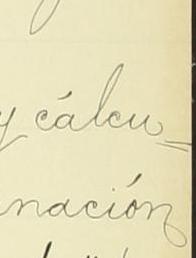 y cálcu-
nación